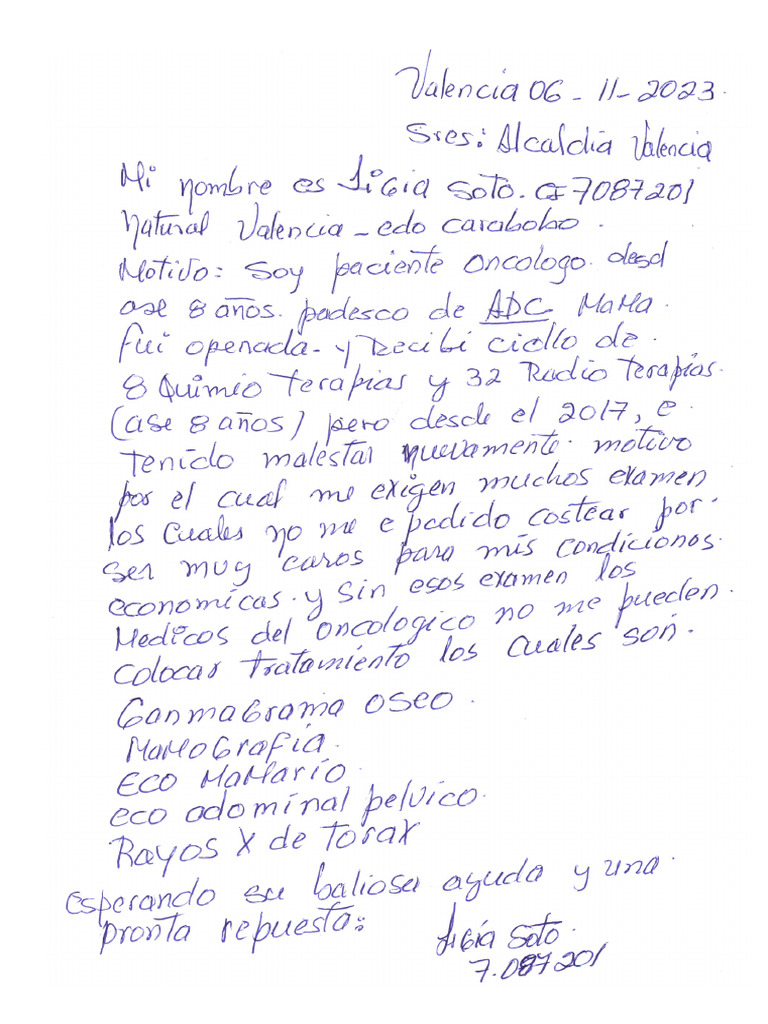 Valencia 06-11-2023.
Sres: Alcaldia Valencia
Mi nombre es Ligia Soto. CI 7087201
Natural Valencia - edo carabobo.
Motivo: Soy paciente oncologo desd
ase 8 años. padesco de ADC MaMa.
fui openada - y Recibi ciollo de.
8 Quimio terapias y 32 Radio terapias.
(ase 8 años) pero desde el 2017, e
tenido malestar nuevamente. motivo
por el cual me exigen muchos examen
los cuales no me e podido costear por.
ser muy caros para mis condiciones.
economicas. y sin esos examen los
Medicos del oncologico no me pueden.
colocar tratamiento los cuales son.
GanmaGrama oseo.
MaMoGrafia.
ECO MaMario.
eco adominal pelvico.
Rayos X de Torax
esperando su baliosa ayuda y una.
pronta repuesta:
Ligia Soto.
7.087201